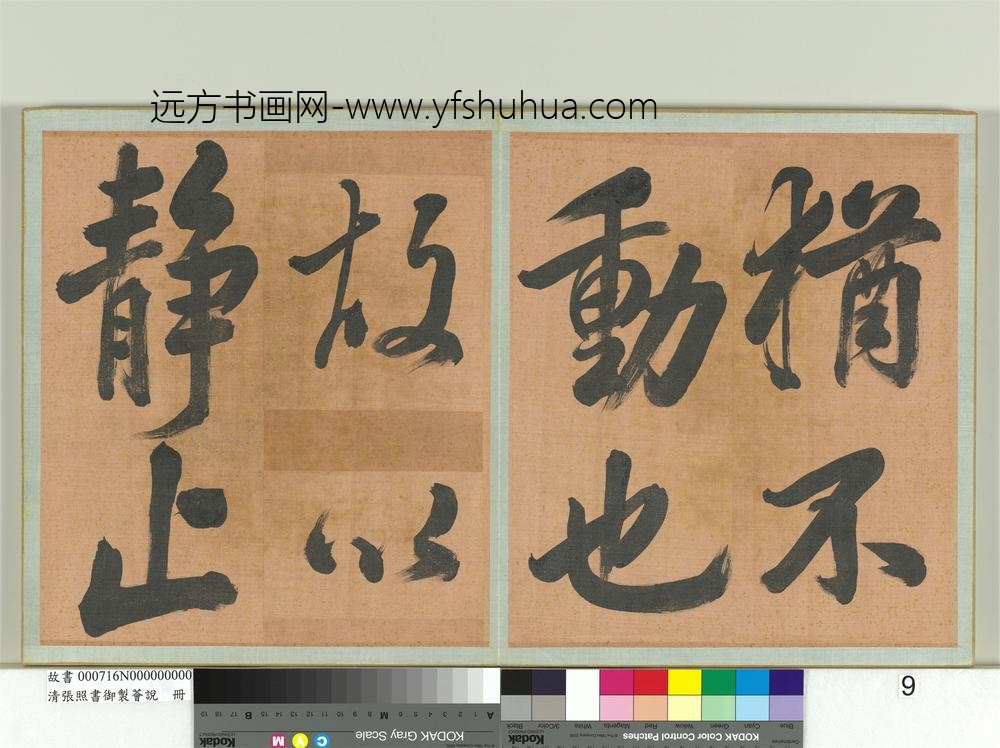 远方书画网-www.yfshuhua.com
猶不
動也
故以
靜止
故書 000716N000000000
清張照書御製薈說 冊
9
Blue
Cyan
Green
Yellow
Red
Magenta
White
3/Color
Black
Centimetres
KODAK Color Control Patches
Kodak
KODAK Gray Scale
C Y M
Kodak
A 1 2 3 4 5 6 M 8 9 10 11 12 13 14 15 B 17 18 19